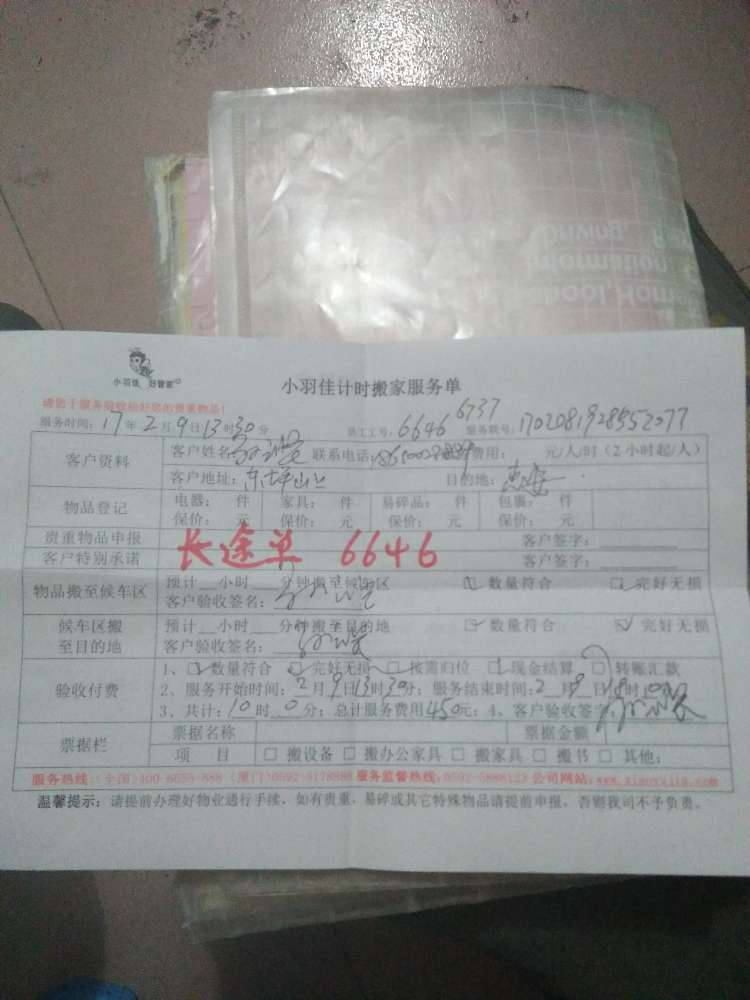 小羽佳 好管家
小羽佳计时搬家服务单
请您于服务前收拾好您的贵重物品!
服务时间: 17年2月9日13时30分 员工工号: 6646 6737 服务联号: 1702081928552077
客户资料 客户姓名 联系电话: 费用: 元/人/时(2小时起/人)
客户地址: 东坪山 目的地:
物品登记 电器: 件 家具: 件 易碎品: 件 包裹: 件
保价: 元 保价: 元 保价: 元 保价: 元
贵重物品申报 客户签字:
长途单 6646
客户特别承诺 客户签字:
物品搬至候车区 预计 小时 分钟搬至候车区 数量符合 完好无损
客户验收签名:
候车区搬至目的地 预计 小时 分钟搬至目的地 数量符合 完好无损
客户验收签名:
验收付费 1、数量符合 完好无损 按需归位 现金结算 转账汇款
2、服务开始时间: 2月9日13时30分; 服务结束时间: 2月 日 时 分
3、共计: 10时0分; 总计服务费用450元; 4、客户验收签字:
票据栏 票据名称 票据金额
项 目 搬设备 搬办公家具 搬家具 搬书 其他:
服务热线: (全国)400-6555-888 (厦门)0592-5178988 服务监督热线: 0592-5888123 公司网站: www.xiaoyujia.com
温馨提示: 请提前办理好物业通行手续, 如有贵重, 易碎或其它特殊物品请提前申报, 否则我司不予负责。